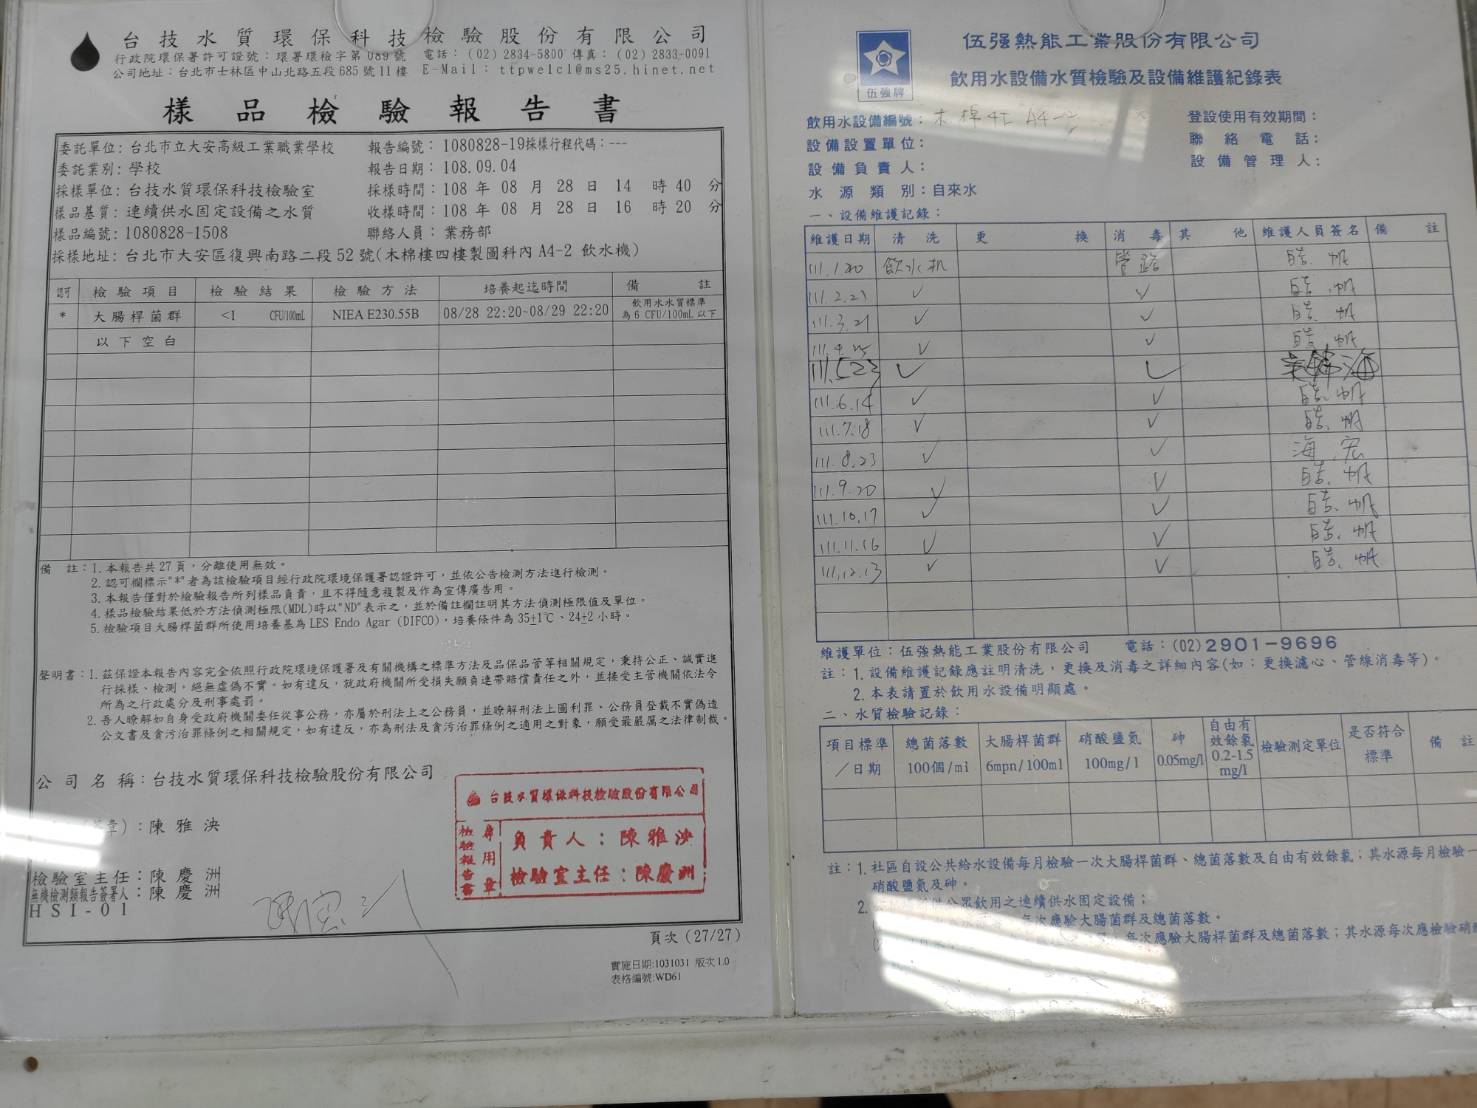 台技水質環保科技檢驗股份有限公司
行政院環保署許可證號：環署環檢字第089號 電話：(02)2834-5800 傳真：(02)2833-0091
公司地址：台北市士林區中山北路五段685號11樓 E-Mail：ttpwelcl@ms25.hinet.net
樣品檢驗報告書
委託單位：台北市立大安高級工業職業學校 報告編號：1080828-19採樣行程代碼：---
委託業別：學校 報告日期：108.09.04
採樣單位：台技水質環保科技檢驗室 採樣時間：108 年 08 月 28 日 14 時 40 分
樣品基質：連續供水固定設備之水質 收樣時間：108 年 08 月 28 日 16 時 20 分
樣品編號：1080828-1508 聯絡人員：業務部
採樣地址：台北市大安區復興南路二段52號(木棉樓四樓製圖科內A4-2 飲水機)
認可 檢驗項目 檢驗結果 檢驗方法 培養起迄時間 備註
* 大腸桿菌群 <1 CFU/100mL NIEA E230.55B 08/28 22:20~08/29 22:20 飲用水水質標準
為 6 CFU/100mL 以下
以下空白
備 註：1.本報告共27頁，分離使用無效。
2.認可欄標示"*"者為該檢驗項目經行政院環境保護署認證許可，並依公告檢測方法進行檢測。
3.本報告僅對於檢驗報告所列樣品負責，且不得隨意複製及作為宣傳廣告用。
4.樣品檢驗結果低於方法偵測極限(MDL)時以"ND"表示之，並於備註欄註明其方法偵測極限值及單位。
5.檢驗項目大腸桿菌群所使用培養基為 LES Endo Agar (DIFCO)，培養條件為 35±1℃、24±2 小時。
聲明書：1.茲保證本報告內容完全依照行政院環境保護署及有關機構之標準方法及品保品管等相關規定，秉持公正、誠實進
行採樣、檢測，絕無虛偽不實。如有違反，就政府機關所受損失願負連帶賠償責任之外，並接受主管機關依法令
所為之行政處分及刑事處罰。
2.吾人瞭解如自身受政府機關委任從事公務，亦屬於刑法上之公務員，並瞭解刑法上圖利罪、公務員登載不實偽造
公文書及貪污治罪條例之相關規定，如有違反，亦為刑法及貪污治罪條例之適用之對象，願受最嚴厲之法律制裁。
公司名稱：台技水質環保科技檢驗股份有限公司
章)：陳雅泱
檢驗室主任：陳慶洲
無機檢測類報告簽署人：陳慶洲
HSI-01
台技水質環保科技檢驗股份有限公司
檢驗報告書
專用章
負責人：陳雅泱
檢驗室主任：陳慶洲
頁次(27/27)
實施日期:1031031 版次1.0
表格編號:WD61
伍強牌
伍强熱能工業股份有限公司
飲用水設備水質檢驗及設備維護紀錄表
飲用水設備編號：木棉4F A4-2 登設使用有效期間：
設備設置單位： 聯絡電話：
設備負責人： 設備管理人：
水源類別：自來水
一、設備維護記錄：
維護日期 清洗 更換 消毒 其他 維護人員簽名 備註
111.1.20 飲水机 管路 皓帆
111.2.21 ✓ ✓ 皓帆
111.3.21 ✓ ✓ 皓帆
111.4.25 ✓ ✓ 皓帆
111.5.23 ✓ ✓
111.6.14 ✓ ✓ 皓帆
111.7.18 ✓ ✓ 皓帆
111.8.23 ✓ ✓ 海宏
111.9.20 ✓ ✓ 皓帆
111.10.17 ✓ ✓ 皓帆
111.11.16 ✓ ✓ 皓帆
111.12.13 ✓ ✓ 皓帆
維護單位：伍强熱能工業股份有限公司 電話：(02)2901-9696
註：1.設備維護記錄應註明清洗，更換及消毒之詳細內容(如：更換濾心、管線消毒等)。
2.本表請置於飲用水設備明顯處。
二、水質檢驗記錄：
項目標準／日期 總菌落數 100個/ml 大腸桿菌群 6mpn/100ml 硝酸鹽氮 100mg/l 砷 0.05mg/l 自由有效餘氯 0.2-1.5 mg/l 檢驗測定單位 是否符合標準 備註
註：1.社區自設公共給水設備每月檢驗一次大腸桿菌群、總菌落數及自由有效餘氯；其水源每月檢驗一
硝酸鹽氮及砷。
2. 供公眾飲用之連續供水固定設備：
每次應驗大腸桿菌群及總菌落數。
每次應驗大腸桿菌群及總菌落數；其水源每次應檢驗硝酸